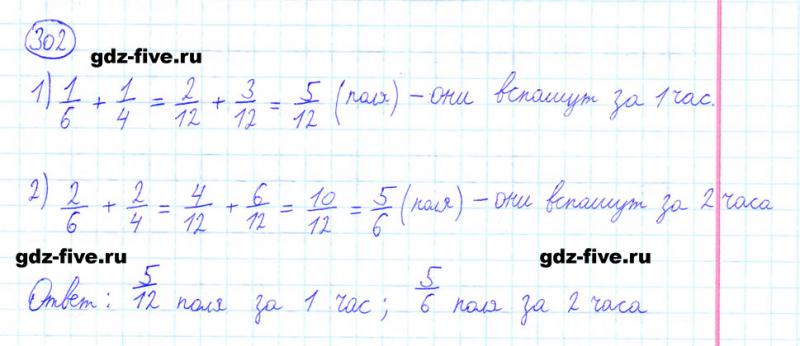 302
gdz-five.ru
1) 1/6 + 1/4 = 2/12 + 3/12 = 5/12 (поля) – они вспашут за 1 час.
2) 2/6 + 2/4 = 4/12 + 6/12 = 10/12 = 5/6 (поля) – они вспашут за 2 часа
gdz-five.ru gdz-five.ru
Ответ: 5/12 поля за 1 час; 5/6 поля за 2 часа